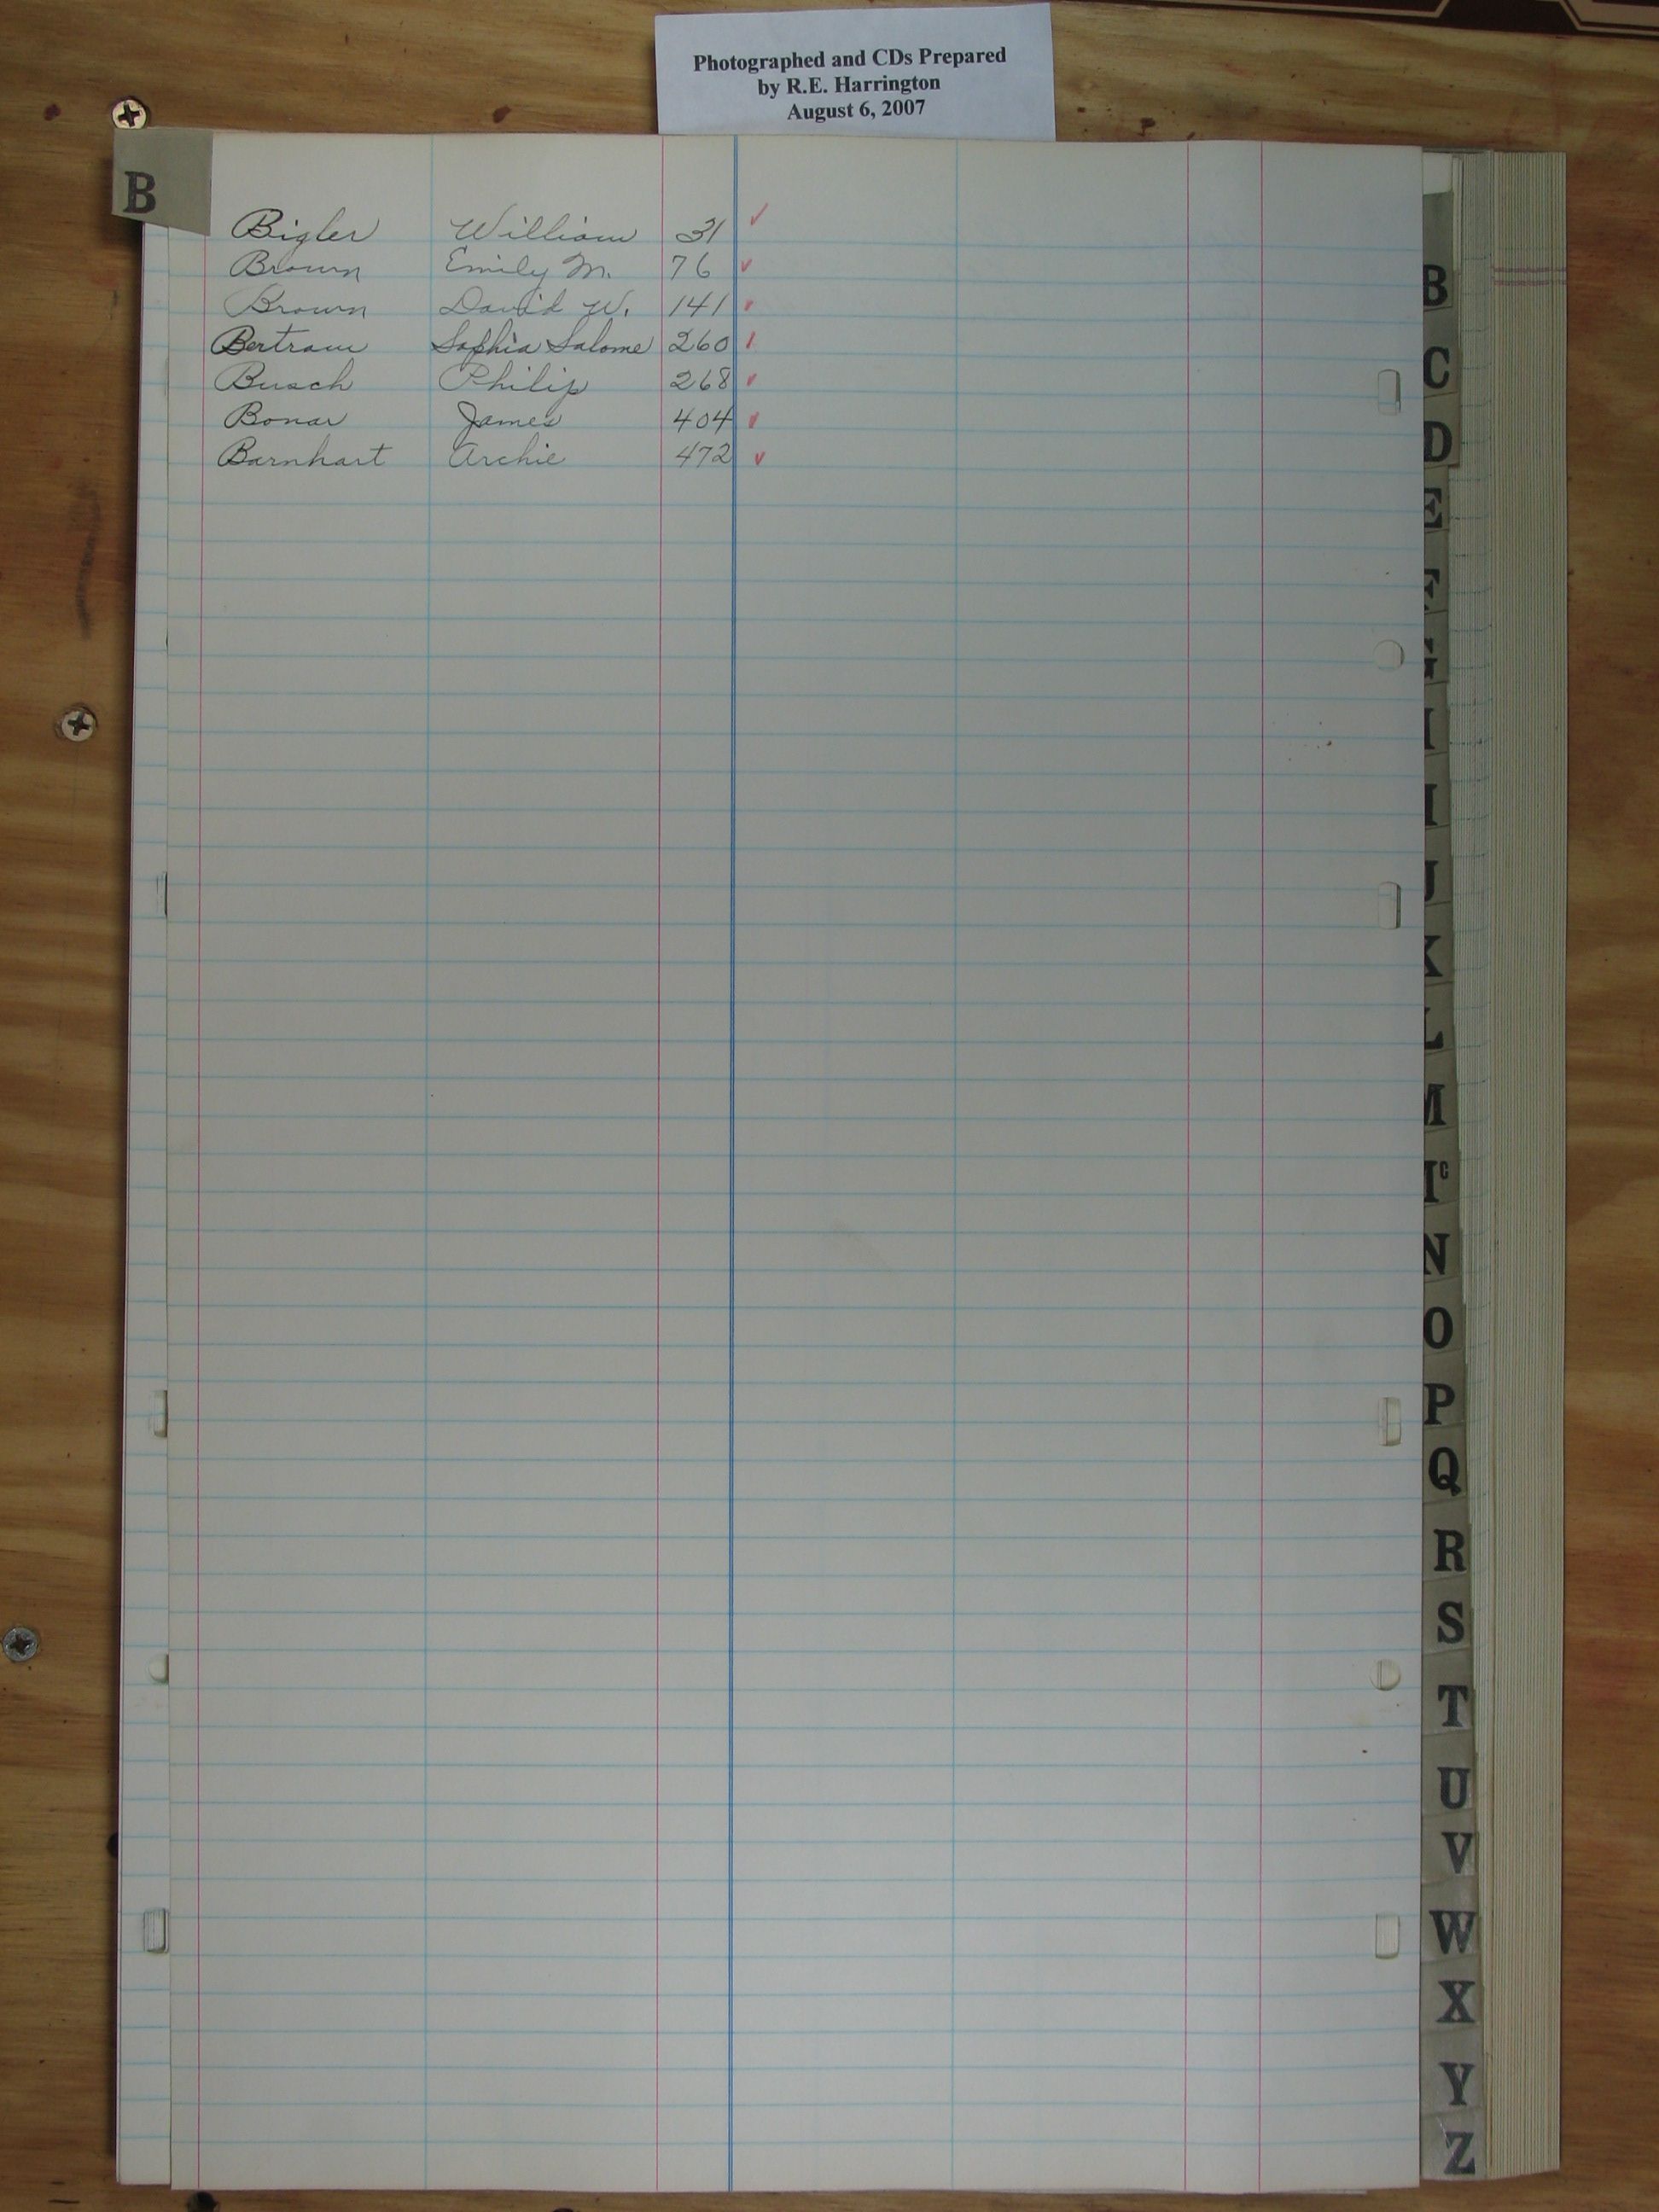 Photographed and CDs Prepared
by R.E. Harrington
August 6, 2007
B
Bigler William 31
Brown Emily M. 76
Brown David W. 141
Bertram Sophia Salome 260
Busch Philip 268
Bonar James 404
Barnhart Archie 472
B
C
D
E
F
G
H
I
J
K
L
M
Mc
N
O
P
Q
R
S
T
U
V
W
X
Y
Z